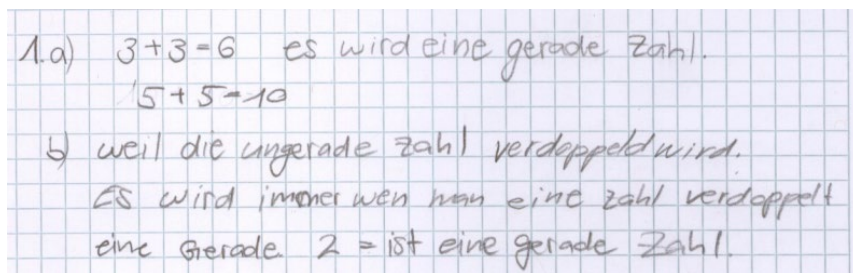 1.a) 3+3=6 es wird eine gerade Zahl.
5+5=10
b) weil die ungerade zahl verdoppeld wird.
Es wird immer wen man eine zahl verdoppelt
eine Gerade 2 = ist eine gerade Zahl.